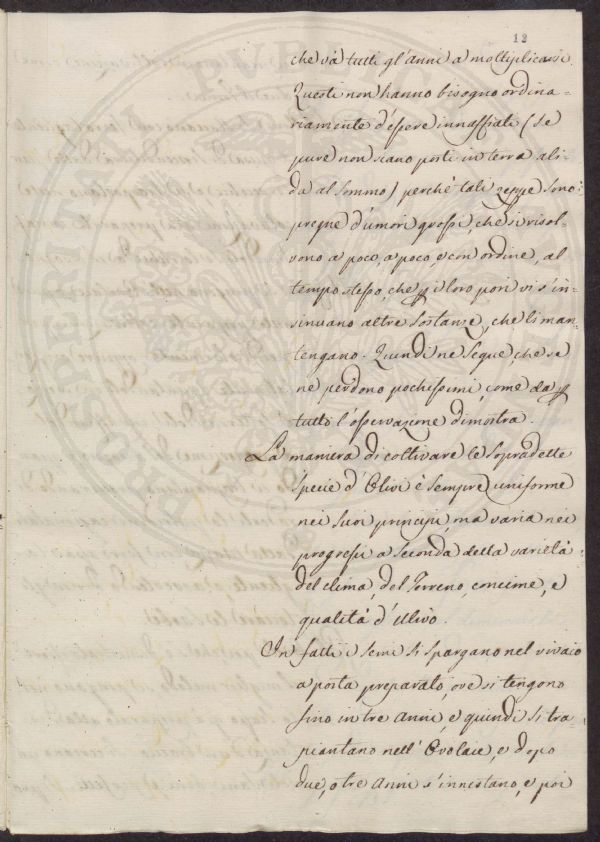 12
che và tutti gl'anni a moltiplicarsi.
Questi non hanno bisogno ordina-
riamente d'essere innaffiati (se
pure non siano posti in terra ali-
da al sommo) perchè tali zeppe sono
pregne d'umori grossi, che si risol-
vono a poco, a poco, e con ordine, al
tempo stesso, che p i loro pori vi s'in-
sinuano altre sostanze, che li man-
tengano. Quindi ne segue, che se
ne perdono pochissimi, come da p
tutto l'osservazione dimostra.
La maniera di coltivare le sopradette
specie d'Olivi è sempre uniforme
nei suoi principj, ma varia nei
progressi a seconda della varietà
del clima, del Terreno, concime, e
qualità d'Ulivo.
In fatti i semi si spargano nel vivaio
a posta preparato, ove si tengono
fino in tre anni, e quindi si tra-
piantano nell'Ovolaie, e dopo
due, o tre anni s'innestano, e poi